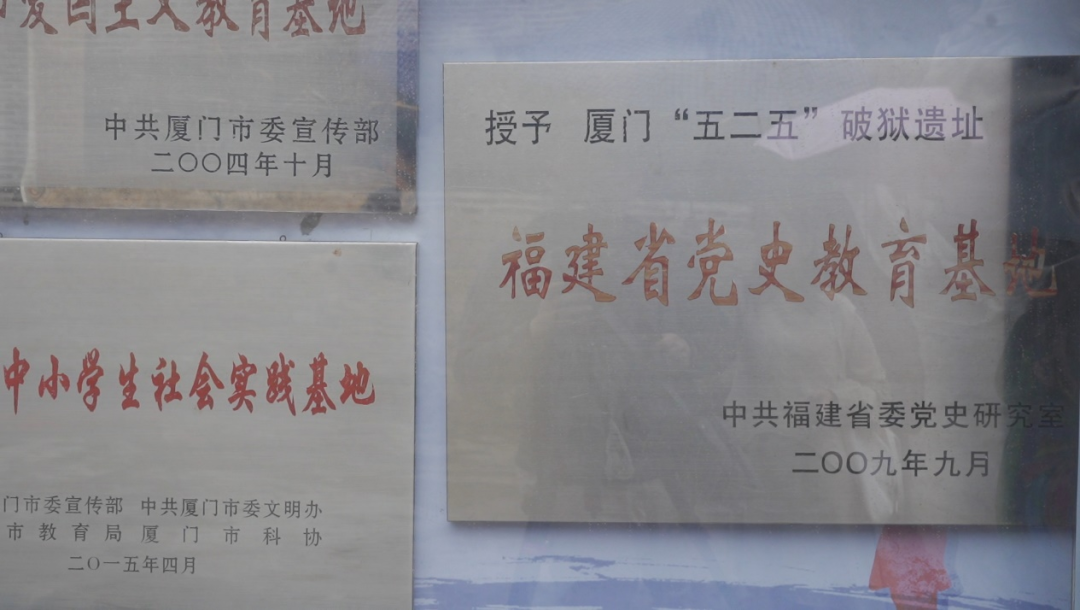 爱国主义教育基地
中共厦门市委宣传部
二〇〇四年十月
中小学生社会实践基地
门市委宣传部 中共厦门市委文明办
市教育局厦门市科协
二〇一五年四月
授予 厦门“五二五”破狱遗址
福建省党史教育基地
中共福建省委党史研究室
二〇〇九年九月